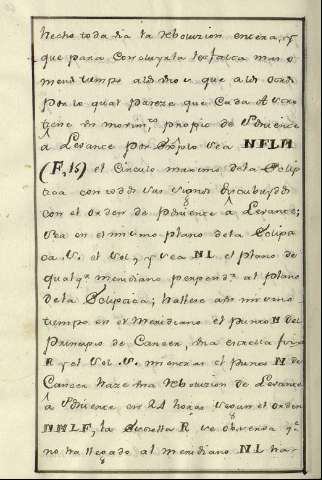 hecho toda via la reboluzion entera, y
que para Concluyrla les falta mas o
menos tiempo a los unos que a los otros
por lo qual pareze que Cada Astro
tiene un movim.to propio de Poniente
â Levante por exemplo sea NFLM
(F, 16) el Circulo maximo dela Eclip
tica con todos sus signos discubiertos
con el orden de poniente â Levante;
sea en el mismo plano dela Eclipti
ca S. el Sol, y sea NL el plano de
qualq.r meridiano perpend.r al plano
dela Ecliptica; hallese a un mismo
tiempo en su Meridiano el punto N del
Principio de Cancer, una estrella fixa
R y el Sol S. mientras el punto N de
Cancer haze una reboluzion de Levante
â Poniente en 24 horas segun el orden
NMLF, la Estrella R se observa q.e
no ha llegado al meridiano NL has-